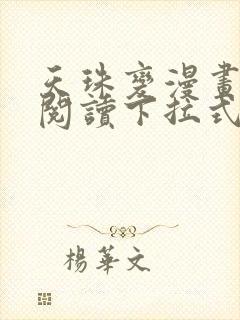 天珠變漫畫
閱讀下拉式
楊華文